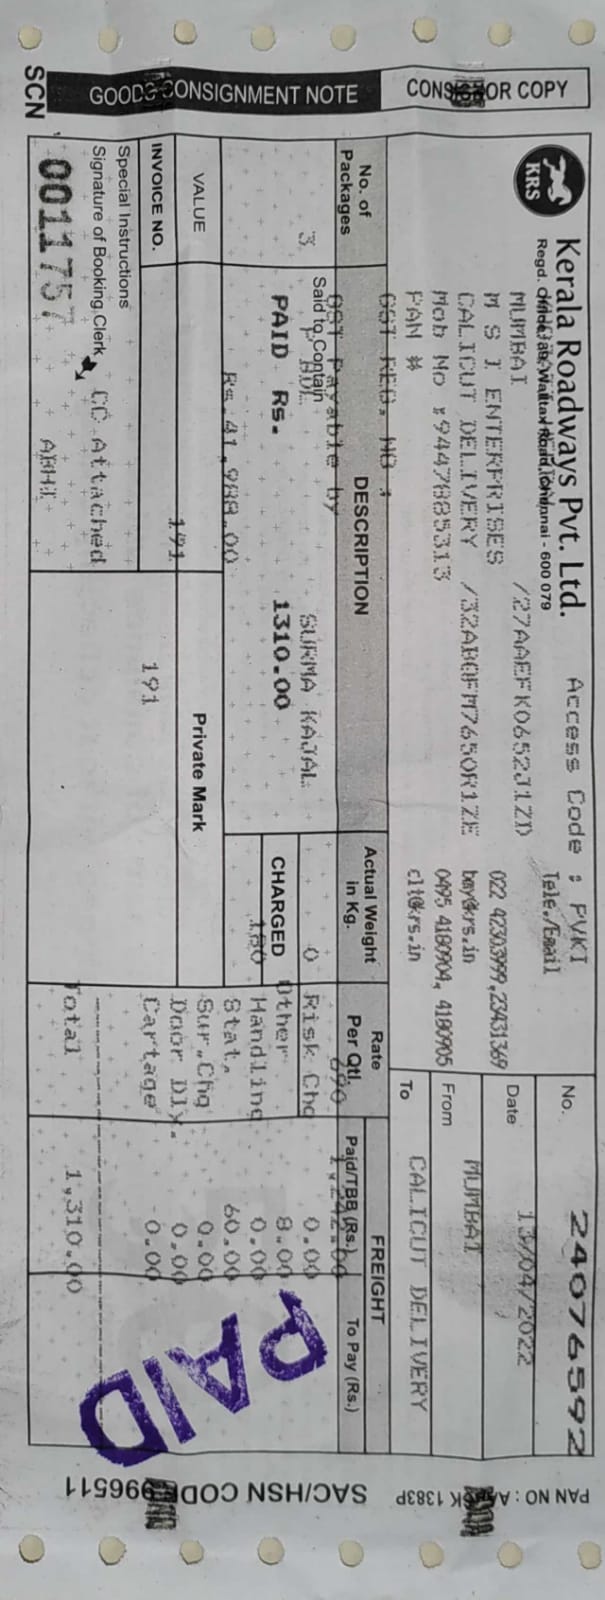 GOODS CONSIGNMENT NOTE
CONSIGNOR COPY
SCN
KRS
Kerala Roadways Pvt. Ltd.
Access Code : PVKI
Regd. Office: 39, Walltax Road, Chennai - 600 079
Tele./Email
MUMBAI /27AAEFK0652J1ZD 022 42303999,23431369
M S I ENTERPRISES bmy@krs.in
CALICUT DELIVERY /32ABQFM7650R1ZE 0495 4180904, 4180905
Mob No :9447885313 clt@krs.in
PAN #
GST REG. NO :
No. 24076592
Date 13/04/2022
From MUMBAI
To CALICUT DELIVERY
No. of Packages
DESCRIPTION
Actual Weight in Kg.
Rate Per Qtl.
FREIGHT
Paid/TBB (Rs.)
To Pay (Rs.)
GST Payable by
690 1,242.00
Said to Contain
3 SURMA KAJAL 0 Risk Chg 0.00
PAID RS. 1310.00
CHARGED
Other 8.00
180
Handling 0.00
Rs.41,988.00
Stat. 60.00
VALUE
Private Mark
Sur.Chg 0.00
191
Door Dly. 0.00
INVOICE NO.
191
Cartage 0.00
Special Instructions
Signature of Booking Clerk
CC Attached
Total 1,310.00
0011757
ABHI
PAID
SAC/HSN CODE 996511
PAN NO :
1383P